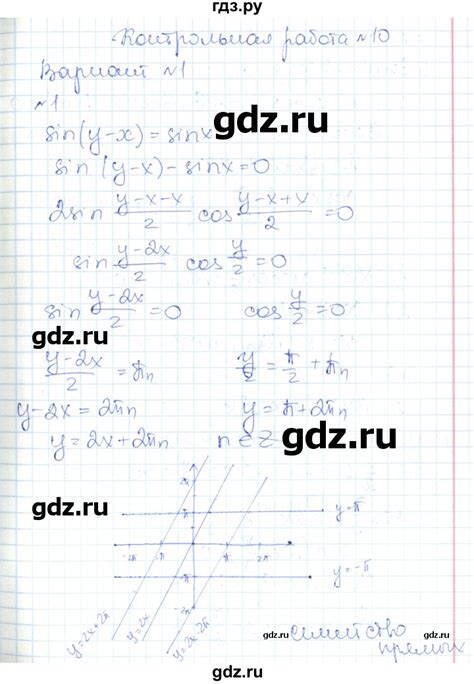 гдз.ру
Контрольная работа №10
Вариант №1
№1
sin(y-x)=sinx
gdz.ru
sin (y-x)-sinx=0
2sin (y-x-x)/2 cos (y-x+x)/2 =0
sin (y-2x)/2 cos y/2 =0
sin (y-2x)/2 =0 cos y/2 =0
gdz.ru
(y-2x)/2 = πn y/2 = π/2 + πn
y-2x = 2πn y = π+2πn
y = 2x+2πn n∈Z
gdz.ru
gdz.ru
y=π
-2π -π π 2π
y=-π
y=2x+2π y=2x y=2x-2π
gdz.ru
семейство
прямых
gdz.ru
gdz.ru